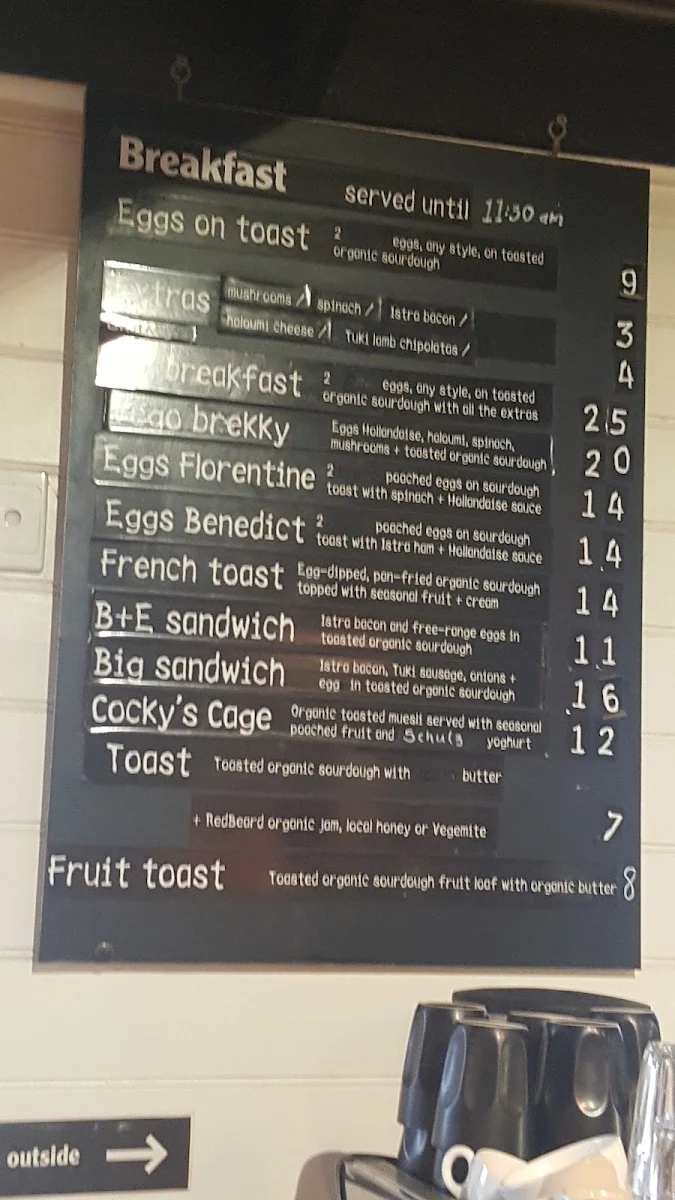 Breakfast served until 11:30 am
Eggs on toast 2 eggs, any style, on toasted
organic sourdough 9
Extras mushrooms / spinach / Istra bacon / 3
haloumi cheese / Tuki lamb chipolatas / 4
breakfast 2 eggs, any style, on toasted
organic sourdough with all the extras 25
brekky Eggs Hollandaise, haloumi, spinach,
mushrooms + toasted organic sourdough 20
Eggs Florentine 2 poached eggs on sourdough
toast with spinach + Hollandaise sauce 14
Eggs Benedict 2 poached eggs on sourdough
toast with Istra ham + Hollandaise sauce 14
French toast Egg-dipped, pan-fried organic sourdough
topped with seasonal fruit + cream 14
B+E sandwich Istra bacon and free-range eggs in
toasted organic sourdough 11
Big sandwich Istra bacon, Tuki sausage, onions +
egg in toasted organic sourdough 16
Cocky's Cage Organic toasted muesli served with seasonal
poached fruit and Schulz yoghurt 12
Toast Toasted organic sourdough with butter
+ RedBeard organic jam, local honey or Vegemite 7
Fruit toast Toasted organic sourdough fruit loaf with organic butter 8
outside